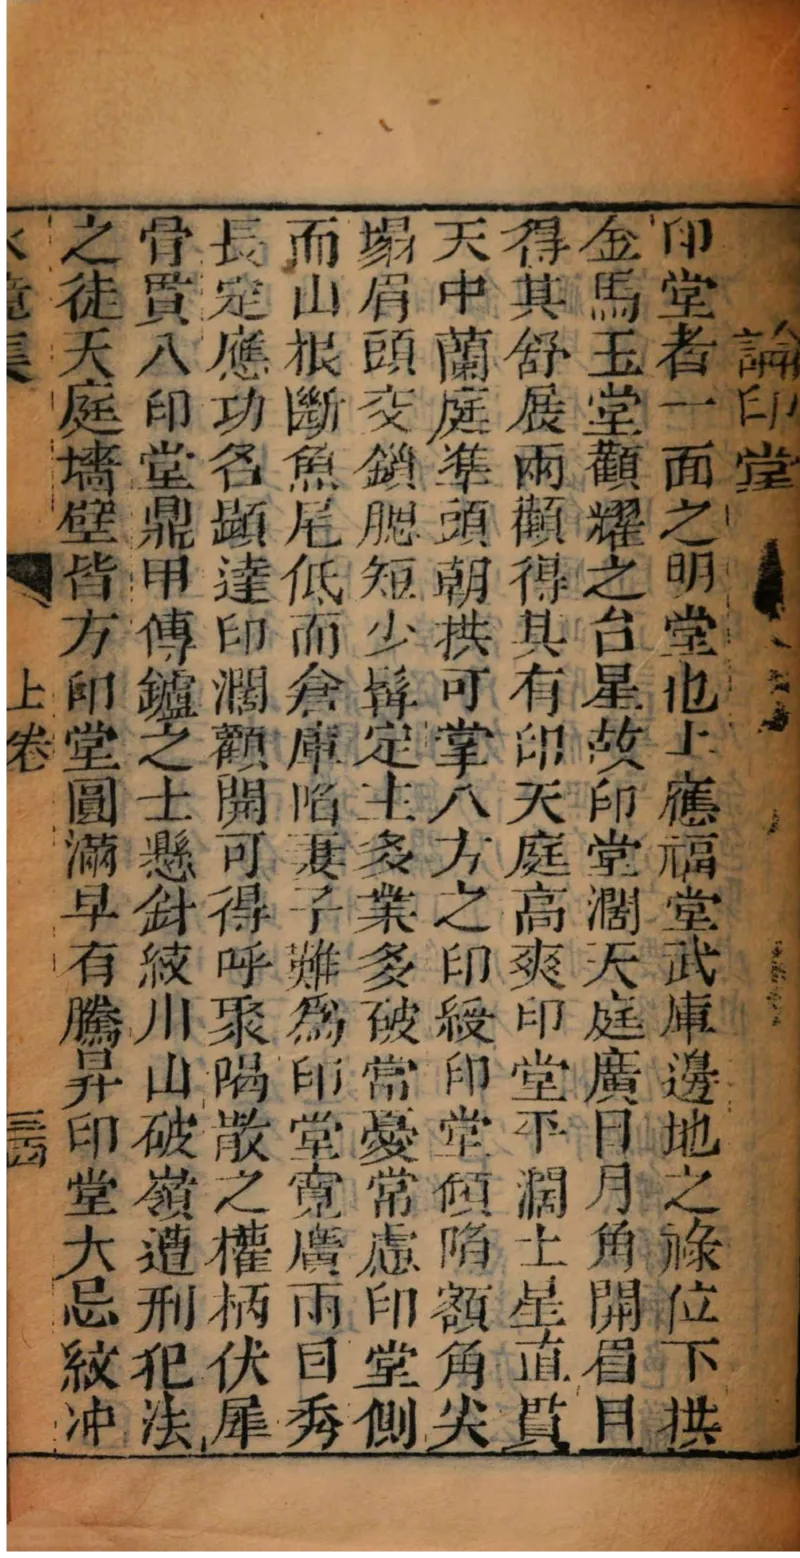 論印堂
印堂者一面之明堂也上應福堂武庫邊地之祿位下拱
金馬玉堂顴耀之台星故印堂濶天庭廣日月角開眉目
得其舒展兩顴得其有印天庭高爽印堂平濶土星直貫
天中蘭庭準頭朝拱可掌八方之印綬印堂傾陷額角尖
塌眉頭交鎖腮短少髯定主多業多破常憂常慮印堂側
而山根斷魚尾低而倉庫陷妻子難為印堂寛廣兩目秀
長定應功名顕達印濶顴開可得呼聚喝散之權柄伏犀
骨貫八印堂鼎甲傳鑪之士懸針紋川山破嶺遭刑犯法
之徒天庭墻壁皆方印堂圓滿早有騰昇印堂大忌紋冲
上卷
三四